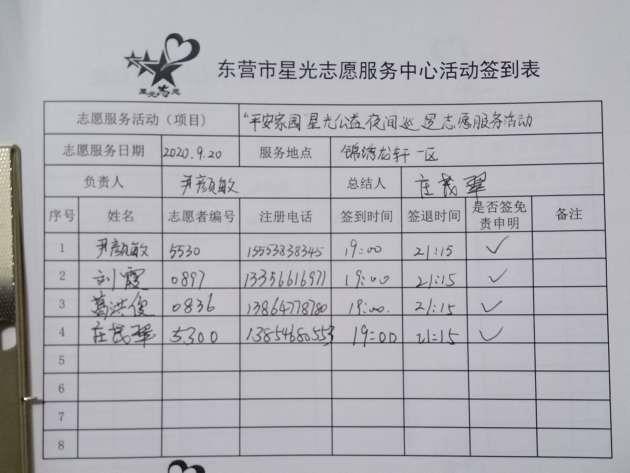 星光志愿
东营市星光志愿服务中心活动签到表
志愿服务活动（项目） "平安家园 星光公益夜间巡逻志愿服务活动
志愿服务日期 2020.9.20 服务地点 锦绣龙轩一区
负责人 尹颜敏 总结人 庄茂翠
序号 姓名 志愿者编号 注册电话 签到时间 签退时间 是否签免责申明 备注
1 尹颜敏 5530 15553838345 19:00 21:15 ✓
2 刘霞 0897 13356616971 19:00 21:15 ✓
3 葛洪俊 0836 13864778780 19:00. 21:15 ✓
4 庄茂翠 5300 13854680553 19:00 21:15 ✓
5
6
7
8